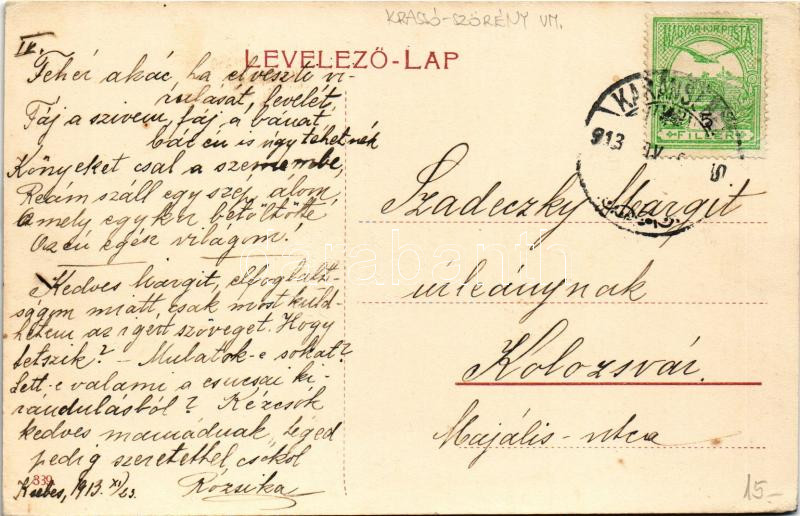 KRASSÓ-SZÖRÉNY VM.
LEVELEZŐ-LAP
IV.
Fehér akác, ha elveszti vi-
rulását, levelét,
Fáj a szivem, fáj a bánat
bár én is úgy tehetnék
Könyeket csal a szemembe,
Reám száll egy szép álom,
Amely egykor betöltötte
Az én egész világom!
Kedves Margit, elfoglalt-
ságom miatt, csak most küld-
hetem az igért szöveget. Hogy
tetszik? - Mulatok-e sokat?
Lett-e valami a csucsai ki-
rándulásból? Kézcsók
kedves mamádnak, téged
pedig szeretettel csókol
339
Ksebes, 1913. XI/23. Rózsika
MAGYAR KIR. POSTA
FILLÉR
913
Szadeczky Margit
úrleánynak
Kolozsvár.
Majális-utca
15.-
darabanth